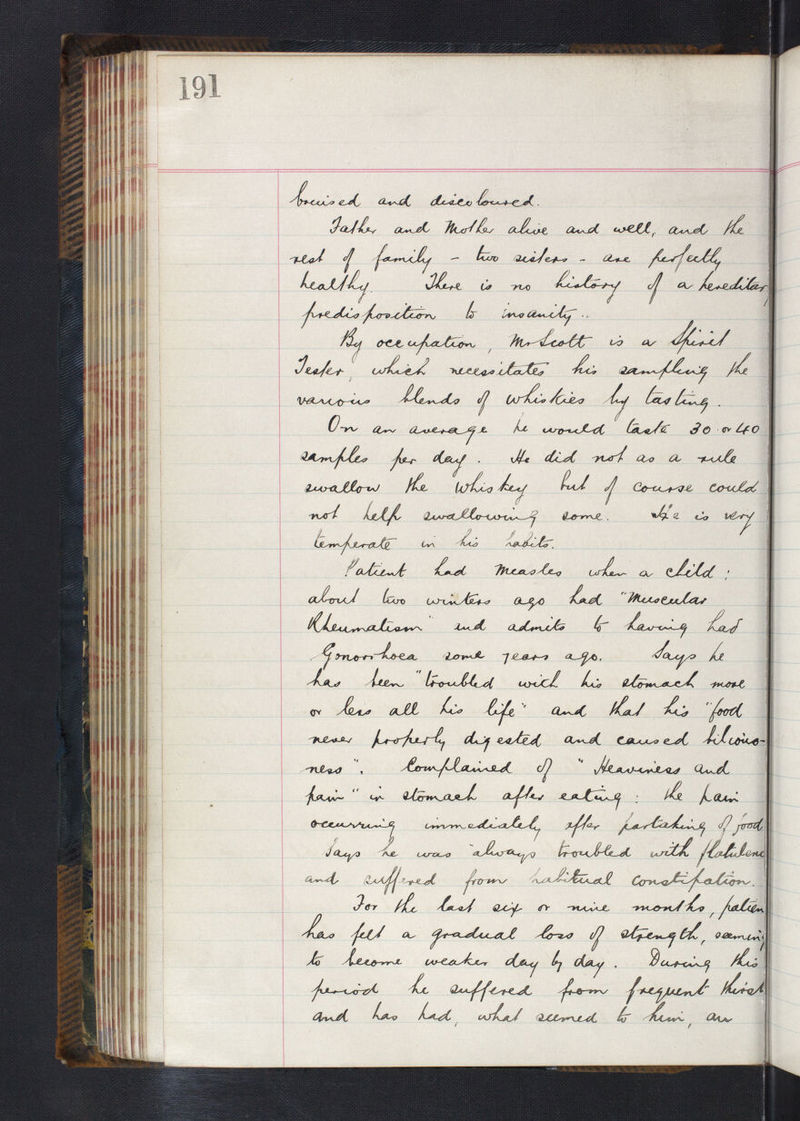 191
bruised and discoloured.
Father and Mother alive and well, and the
rest of family - two sisters - are perfectly
healthy. There is no history of a hereditary
predisposition to insanity..
By occupation, Mr Scott is a Spirit
Tester, which necessitates his sampling the
various blends of whiskies by tasting.
On an average he would taste 30 or 40
samples per day. He did not as a rule
swallow the whiskey but of course could
not help swallowing some. He is very
temperate in his habits.
Patient had Measles when a child;
about two winters ago had "Muscular
Rheumatism" and admits to having had
Gonorrhoea some years ago. Says he
has been "troubled with his stomach more
or less all his life" and that his "food
never properly digested and caused bilious-
ness". Complained of "Heaviness and
pain" in stomach after eating: the pain
occurring immediately after partaking of food
Says he was "always troubled with flatulence
and suffered from habitual constipation.
For the last six or nine months, patien
has felt a gradual loss of strength, seeming
to become weaker day by day. During this
period he suffered from frequent thirst
and has had, what seemed to him, an